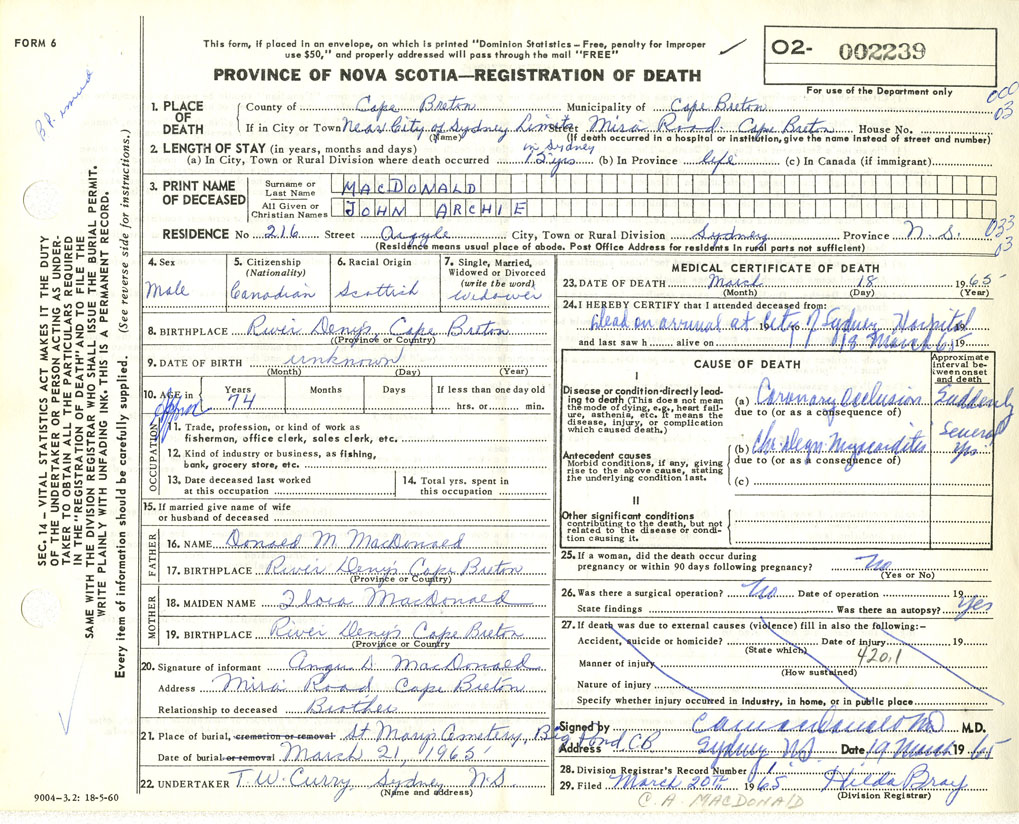 FORM 6
This form, if placed in an envelope, on which is printed "Dominion Statistics – Free, penalty for improper
use $50," and properly addressed will pass through the mail "FREE"
O2- 002239
For use of the Department only
PROVINCE OF NOVA SCOTIA—REGISTRATION OF DEATH
SEC. 14 – VITAL STATISTICS ACT MAKES IT THE DUTY
OF THE UNDERTAKER OR PERSON ACTING AS UNDER-
TAKER TO OBTAIN ALL THE PARTICULARS REQUIRED
IN THE "REGISTRATION OF DEATH" AND TO FILE THE
SAME WITH THE DIVISION REGISTRAR WHO SHALL ISSUE THE BURIAL PERMIT.
WRITE PLAINLY WITH UNFADING INK. THIS IS A PERMANENT RECORD.
Every item of information should be carefully supplied. (See reverse side for instructions.)
1. PLACE OF DEATH
County of Cape Breton Municipality of Cape Breton
03
If in City or Town Near City of Sydney Limits Street Mira Road: Cape Breton House No.
(Name) (If death occurred in a hospital or institution, give the name instead of street and number)
2. LENGTH OF STAY (in years, months and days) in Sydney
(a) In City, Town or Rural Division where death occurred 12 yrs (b) In Province life (c) In Canada (if immigrant)
3. PRINT NAME OF DECEASED
Surname or Last Name MACDONALD
All Given or Christian Names JOHN ARCHIE
RESIDENCE No 216 Street Argyle City, Town or Rural Division Sydney Province N. S. 033
03
(Residence means usual place of abode. Post Office Address for residents in rural parts not sufficient)
4. Sex Male
5. Citizenship (Nationality) Canadian
6. Racial Origin Scottish
7. Single, Married, Widowed or Divorced (write the word) Widower
8. BIRTHPLACE River Denys, Cape Breton
(Province or Country)
9. DATE OF BIRTH unknown
(Month) (Day) (Year)
10. AGE in Years 74 Months Days If less than one day old
approx hrs. or min.
OCCUPATION
11. Trade, profession, or kind of work as
fisherman, office clerk, sales clerk, etc.
12. Kind of industry or business, as fishing,
bank, grocery store, etc.
13. Date deceased last worked
at this occupation
14. Total yrs. spent in
this occupation
15. If married give name of wife
or husband of deceased
FATHER
16. NAME Donald M. MacDonald
17. BIRTHPLACE River Denys Cape Breton
(Province or Country)
MOTHER
18. MAIDEN NAME Flora MacDonald
19. BIRTHPLACE River Denys Cape Breton
(Province or Country)
20. Signature of informant Angus D MacDonald
Address Mira Road Cape Breton
Relationship to deceased Brother
21. Place of burial, cremation or removal St Marys Cemetery, Big Pond CB
Date of burial or removal March 21, 1965
22. UNDERTAKER T. W. Curry, Sydney N.S.
(Name and address)
9004–3.2: 18-5-60
MEDICAL CERTIFICATE OF DEATH
23. DATE OF DEATH March 18 1965
(Month) (Day) (Year)
24. I HEREBY CERTIFY that I attended deceased from:
dead on arrival at City of Sydney Hospital
and last saw h alive on 18 March 65 19
CAUSE OF DEATH
Approximate interval between onset and death
I
Disease or condition directly leading
to death (This does not mean
the mode of dying, e.g., heart failure,
asthenia, etc. It means the
disease, injury, or complication
which caused death.)
(a) Coronary occlusion Suddenly
due to (or as a consequence of)
Antecedent causes
Morbid conditions, if any, giving
rise to the above cause, stating
the underlying condition last.
(b) Chr. degn. Myocarditis Several yrs
due to (or as a consequence of)
(c)
II
Other significant conditions
contributing to the death, but not
related to the disease or condition
causing it.
25. If a woman, did the death occur during
pregnancy or within 90 days following pregnancy? No
(Yes or No)
26. Was there a surgical operation? No Date of operation 19
State findings Was there an autopsy? Yes
27. If death was due to external causes (violence) fill in also the following:–
Accident, suicide or homicide? Date of injury 19
(State which) 420.1
Manner of injury
(How sustained)
Nature of injury
Specify whether injury occurred in industry, in home, or in public place
Signed by M.D.
Address Sydney N.S. Date 19 March 1965
28. Division Registrar's Record Number 1
29. Filed March 20th 1965 Hilda Bray
(Division Registrar)
C. A. MACDONALD